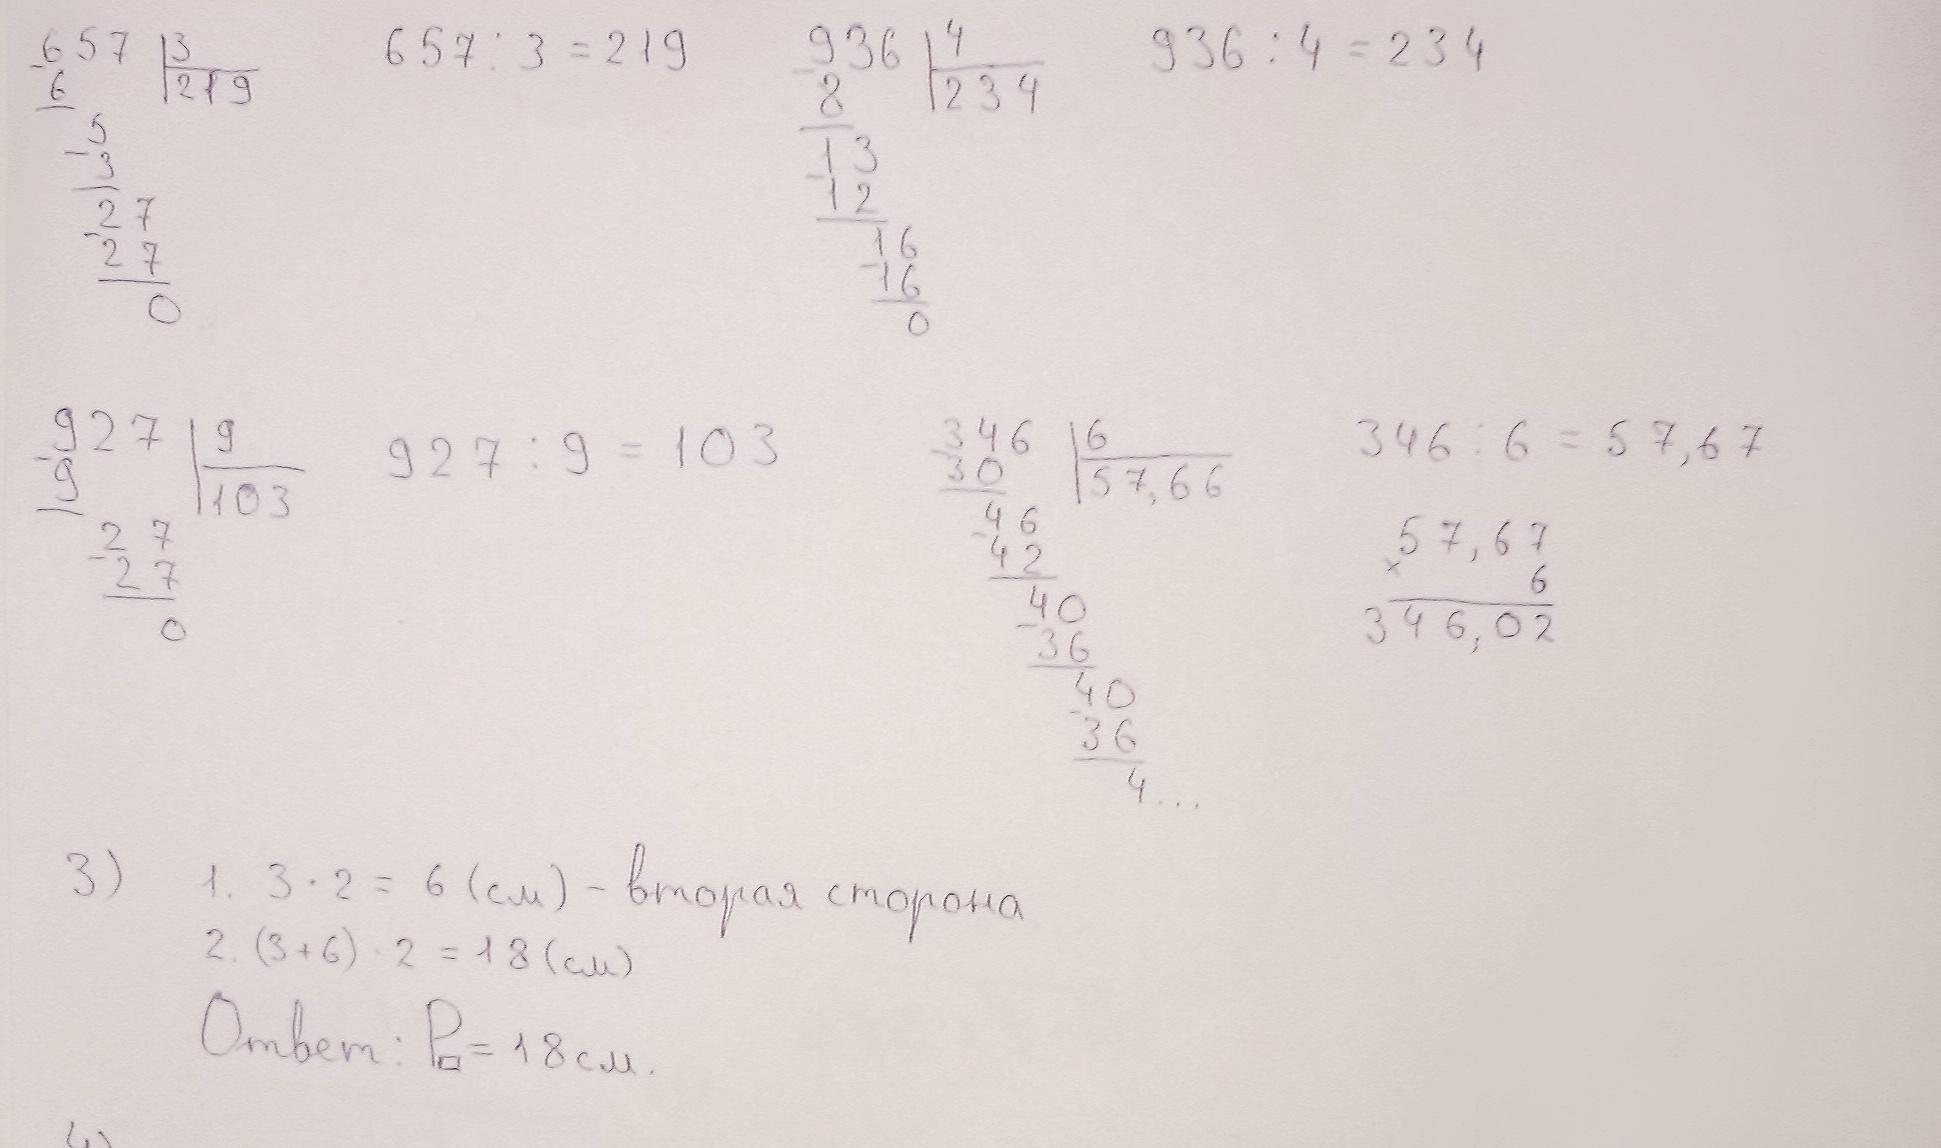 657 | 3   657 : 3 = 219   936 | 4   936 : 4 = 234
6   219   8   234
5   13
3   12
27   16
27   16
0   0
927 | 9   927 : 9 = 103   346 | 6   346 : 6 = 57,67
9   103   30   57,66
27   46   57,67
27   42   × 6
0   40   346,02
36
40
36
4...
3) 1. 3 · 2 = 6 (см) – вторая сторона
2. (3+6) · 2 = 18 (см)
Ответ: P□ = 18 см.